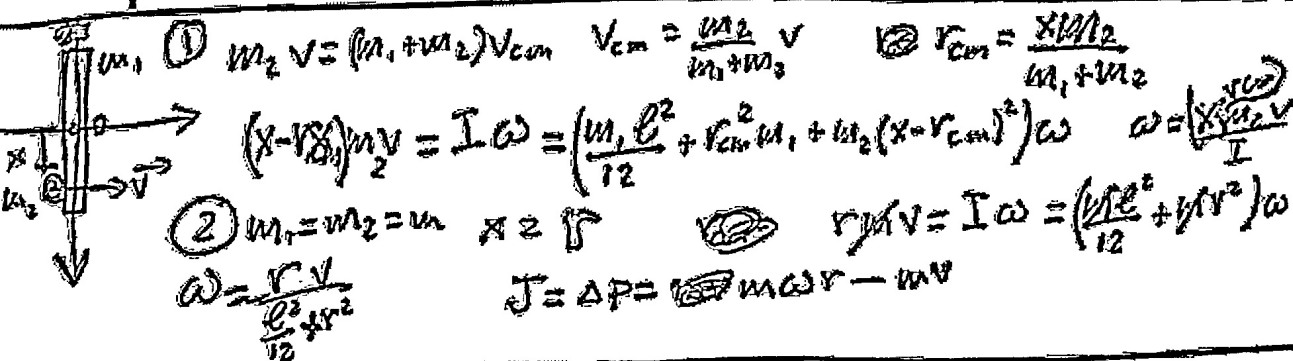 m₁ ① m₂ v = (m₁+m₂)Vcm Vcm = m₂/(m₁+m₂) v rcm = xm₂/(m₁+m₂)
0 (x-r)m₂v = Iω = (m₁ℓ²/12 + rcm²m₁ + m₂(x-rcm)²)ω ω = (x-rcm)m₂v/I
x
m₂ v
② m₁=m₂=m x=r rmv = Iω = (mℓ²/12 + mr²)ω
ω = r·v/(ℓ²/12 + r²) J = Δp = mωr - mv